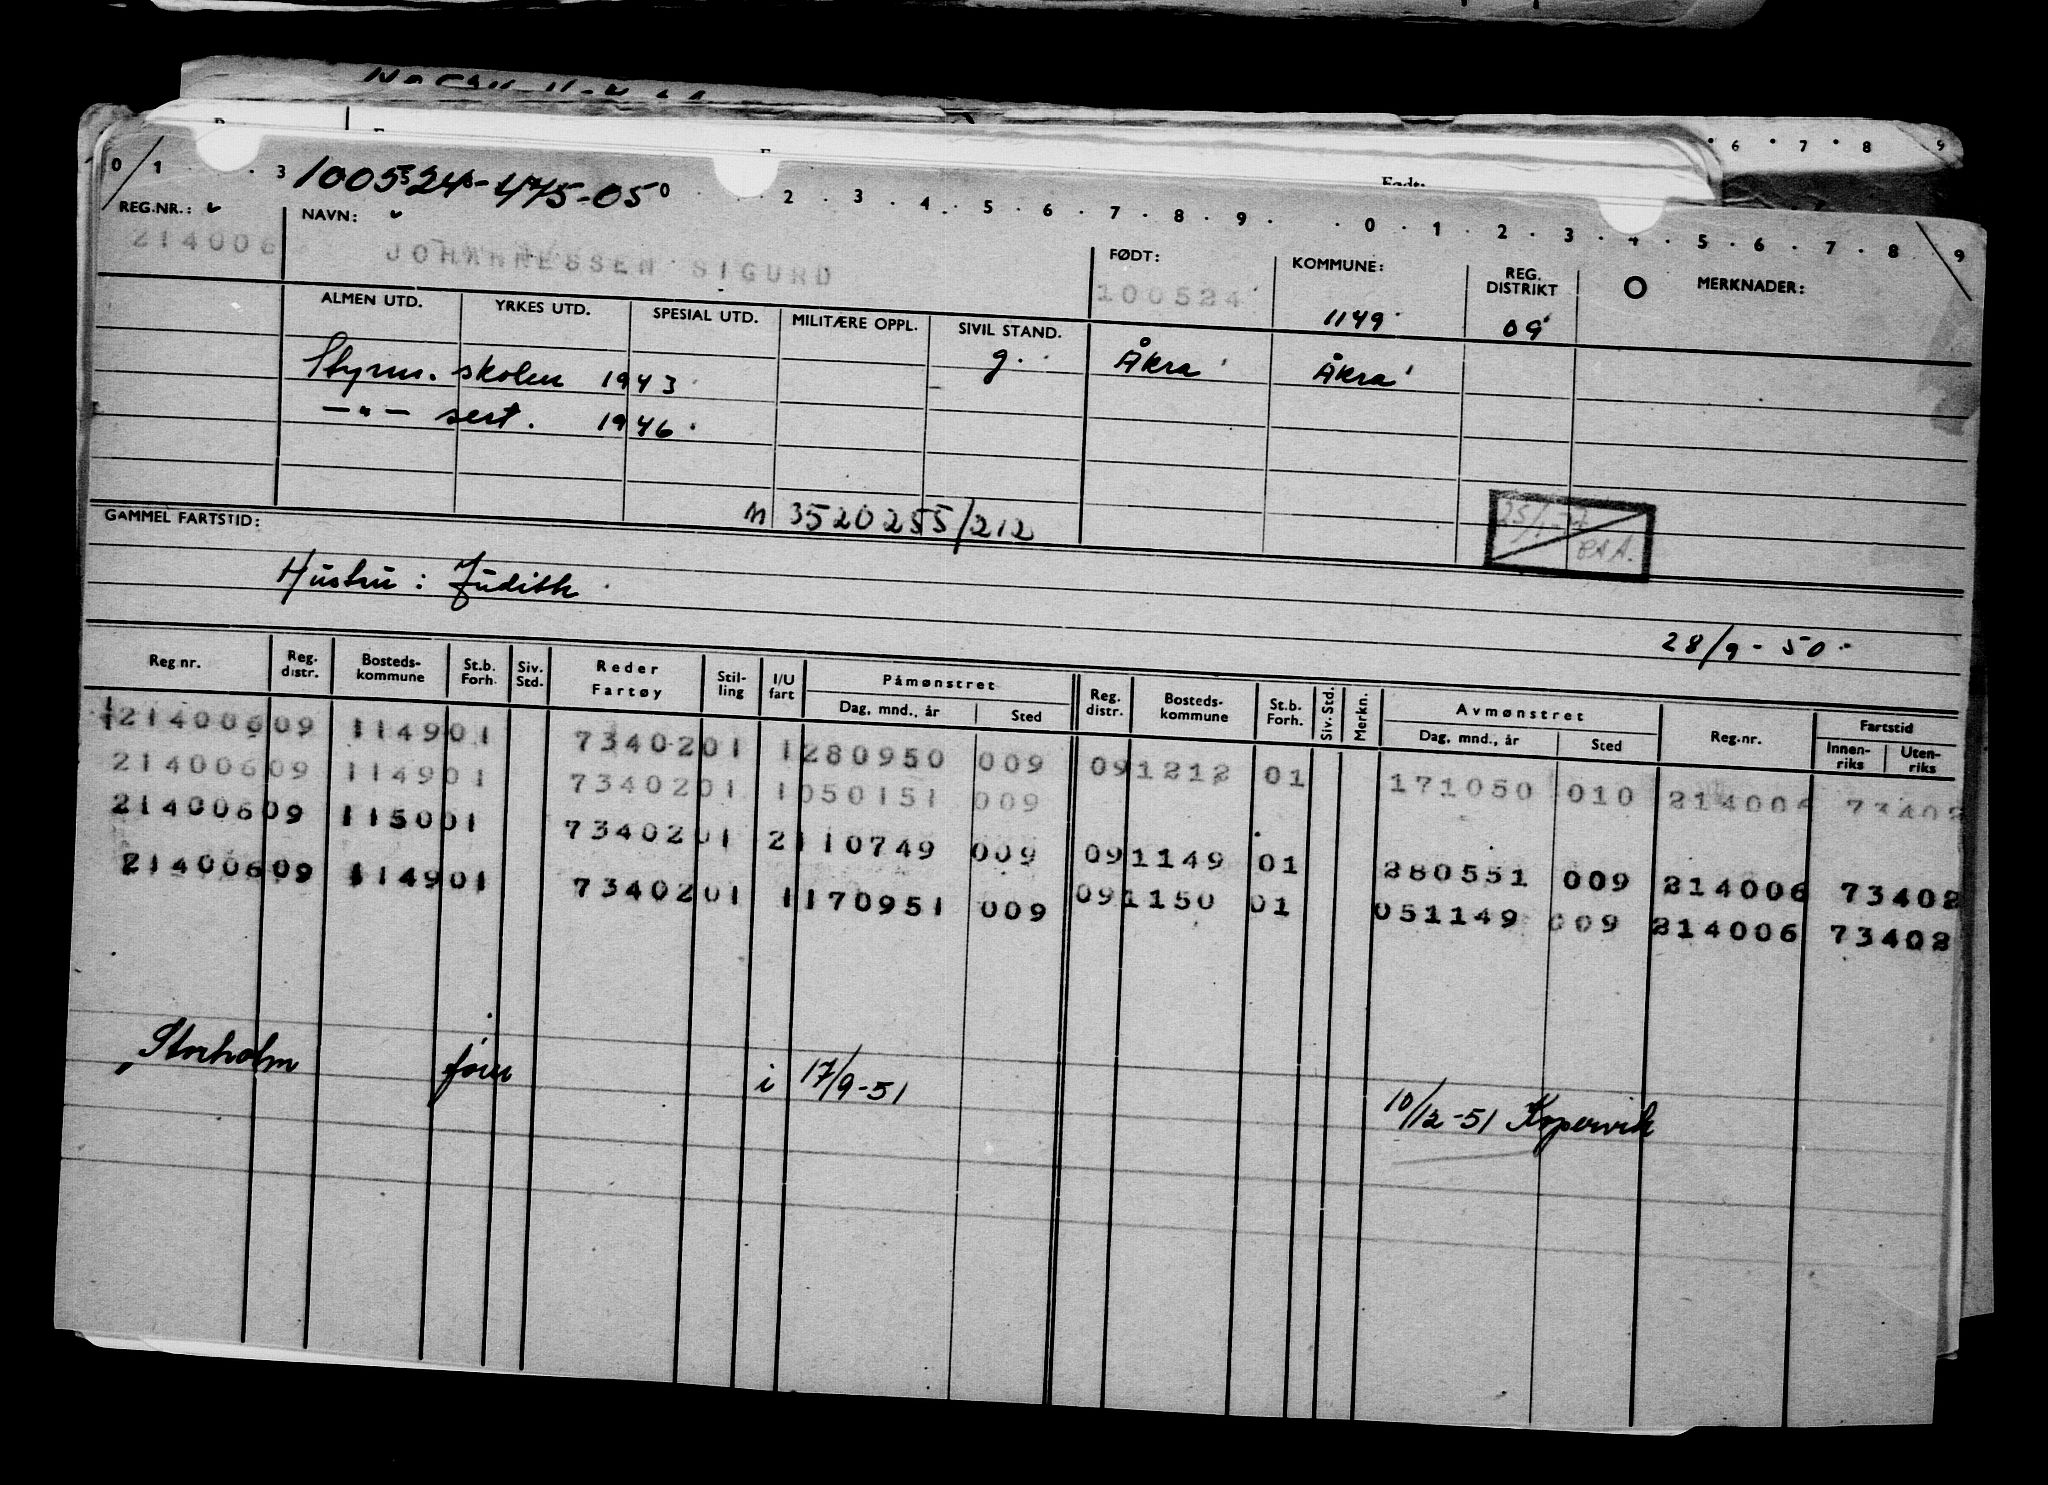 6 7 8 9
Født:
0 1 3 100524-475-05 0 2 3 4 5 6 7 8 9 0 1 2 3 4 5 6 7 8 9
REG.NR.: NAVN: FØDT: KOMMUNE: REG. DISTRIKT MERKNADER:
214006 JOHANNESSEN SIGURD 100524 1149 09
ALMEN UTD. YRKES UTD. SPESIAL UTD. MILITÆRE OPPL. SIVIL STAND.
Styrm. skolen 1943 g. Åkra Åkra
—"— sert. 1946
M 3520255/212
GAMMEL FARTSTID:
Hustru: Judith
28/9-50
Reg.nr. Reg. distr. Bosteds-kommune St.b. Forh. Siv. Std. Reder Fartøy Stil-ling I/U fart Påmønstret Dag, mnd., år Sted Reg. distr. Bosteds-kommune St.b. Forh. Siv. Std. Merkn. Avmønstret Dag, mnd., år Sted Reg.nr. Fartstid Innen-riks Uten-riks
214006 09 1149 01 73402 01 1 280950 009 09 1212 01 171050 010 214006 73402
214006 09 1149 01 73402 01 1 050151 009
214006 09 1150 01 73402 01 2 110749 009 09 1149 01 280551 009 214006 73402
214006 09 1149 01 73402 01 1 170951 009 09 1150 01 051149 009 214006 73402
Storholm i 17/9-51 10/12-51 Kopervik